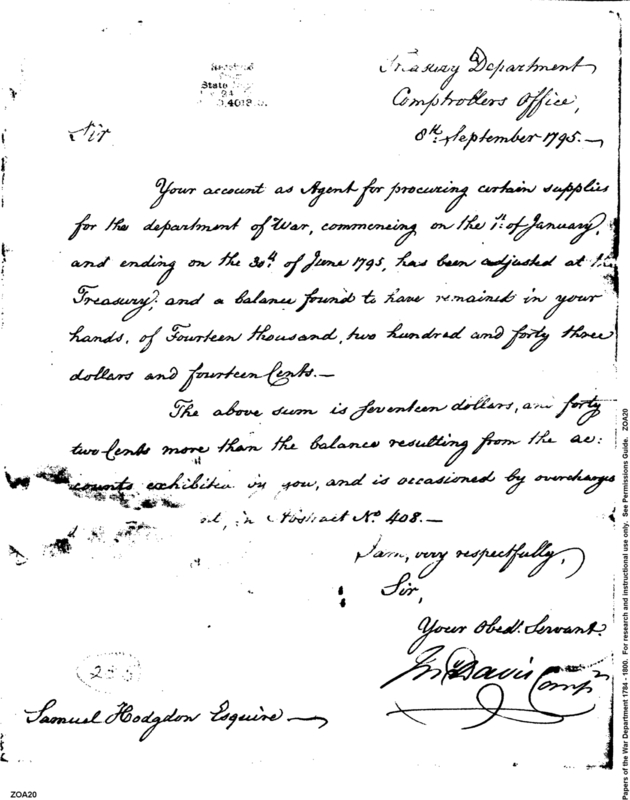 Received
State
24
4018
Treasury Department
Comptrollers Office,
8th. September 1795.—
Sir
Your account as Agent for procuring certain supplies
for the department of War, commencing on the 1st. of January,
and ending on the 30th. of June 1795, has been adjusted at the
Treasury, and a balance found to have remained in your
hands, of Fourteen thousand, two hundred and forty three
dollars and fourteen Cents.—
The above sum is seventeen dollars, and forty
two Cents more than the balance resulting from the ac:
counts exhibited by you, and is occasioned by overcharges
in Abstract No. 408.—
I am, very respectfully,
Sir,
Your Obedt. Servant.
Jno Davis Compr
255
Samuel Hodgdon Esquire
ZOA20
Papers of the War Department 1784 - 1800. For research and instructional use only. See Permissions Guide. ZOA20